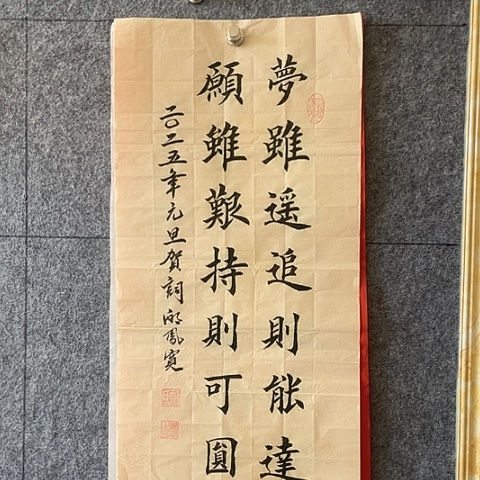 夢雖遥追則能達
願雖艱持則可圓
二〇二五年元旦賀詞 鳳寬